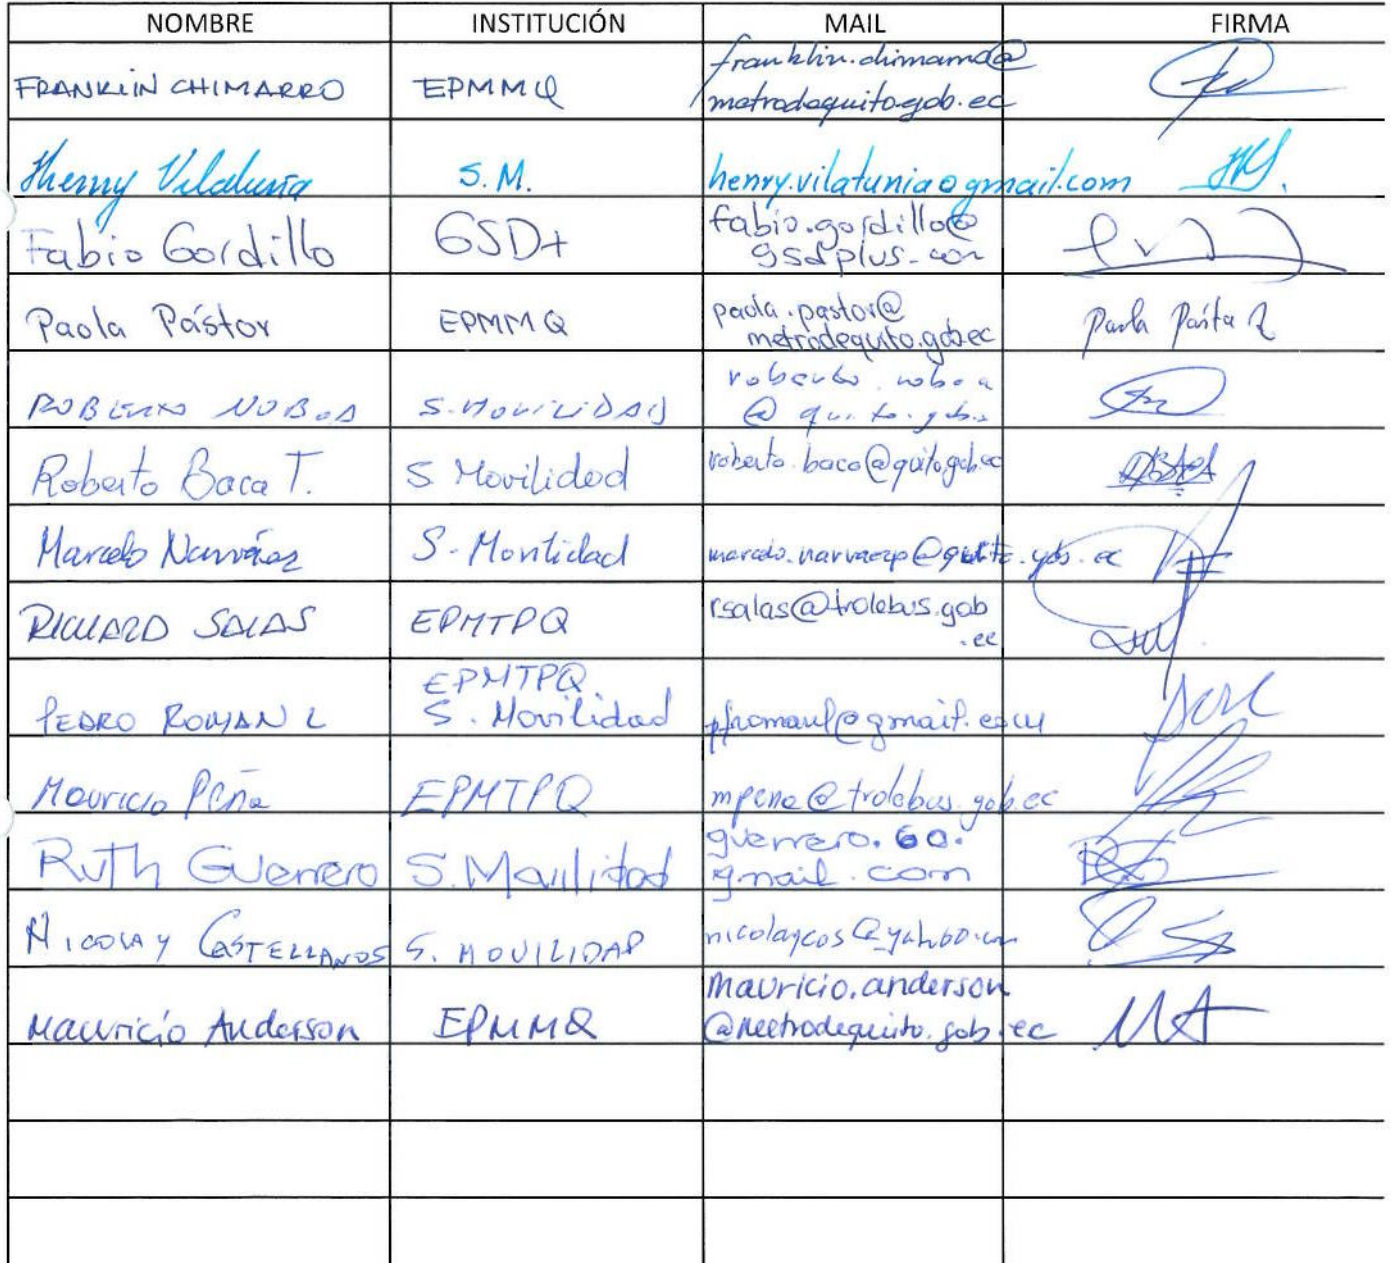 NOMBRE INSTITUCIÓN MAIL FIRMA
FRANKLIN CHIMARRO EPMMQ franklin.chimarro@
metrodequito.gob.ec
Henry Vilatuña S.M. henry.vilatunia@gmail.com
Fabio Gordillo GSD+ fabio.gordillo@
gsdplus.com
Paola Pástor EPMMQ paola.pastor@
metrodequito.gob.ec Paola Pásto
ROBERTO NOBOA S. MOVILIDAD roberto.noboa
@quito.gob.
Roberto Baca T. S Movilidad roberto.baca@quito.gob.ec
Marcelo Narváez S. Movilidad marcelo.narvaezp@quito.gob.ec
RICHARD SALAS EPMTPQ rsalas@trolebus.gob
.ec
EPMTPQ
PEDRO ROMAN L S. Movilidad pfromanl@gmail.com
Mauricio Peña EPMTPQ mpena@trolebus.gob.ec
Ruth Guerrero S. Movilidad guerrero.60.
gmail.com
NICOLAY CASTELLANOS S. MOVILIDAD nicolaycos@yahoo.com
Mauricio Anderson EPMMQ mauricio.anderson
@metrodequito.gob.ec MA